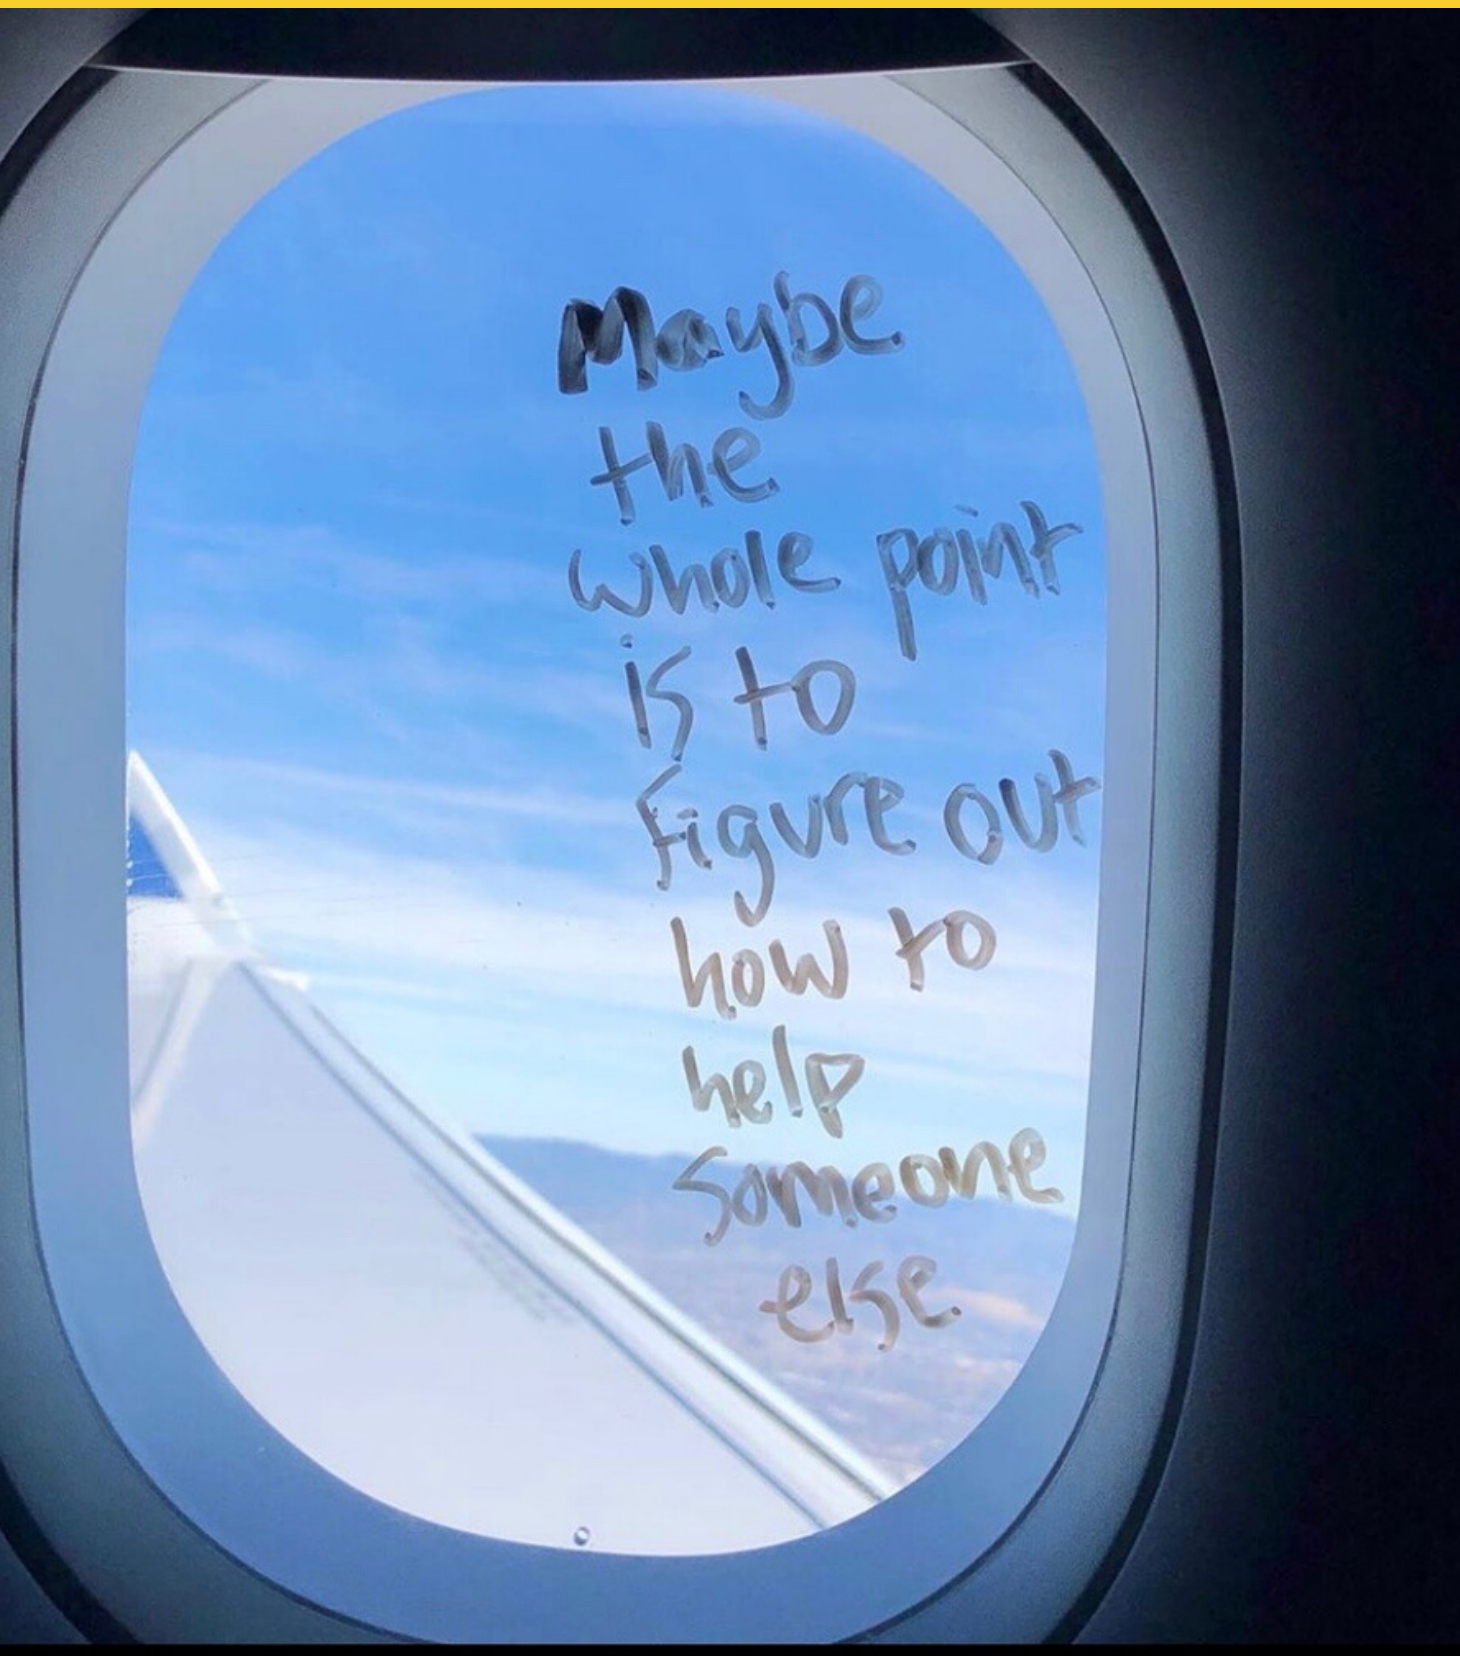 Maybe
the
whole point
is to
Figure out
how to
help
someone
else